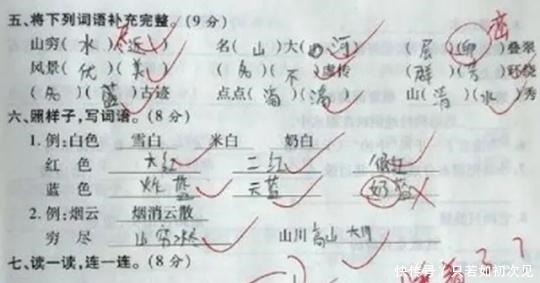 五、将下列词语补充完整。(9分)
山穷(水)(尽) 名(山)大(河) (层)(卯)叠翠 峦
风景(优)(美) (名)(不)虚传 (群)( )环绕
(名)( )古迹 点点(滴)(滴) 山(清)(水)秀
六、照样子,写词语。(8分)
1. 例:白色 雪白 米白 奶白
红 色 大红 二红
蓝 色 蓝 天蓝 奶蓝
2. 例:烟云 烟消云散
穷 尽 山穷水尽 山川 高山大川
七、读一读,连一连。(8分)
快传号/只若如初次见